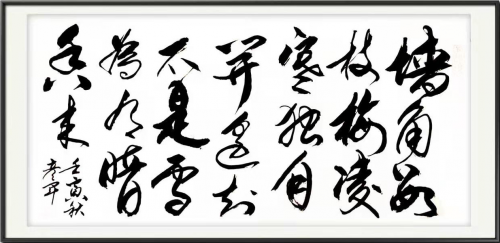 墙角数
枝梅凌
寒独自
开遥知
不是雪
為有暗
香来
壬寅秋